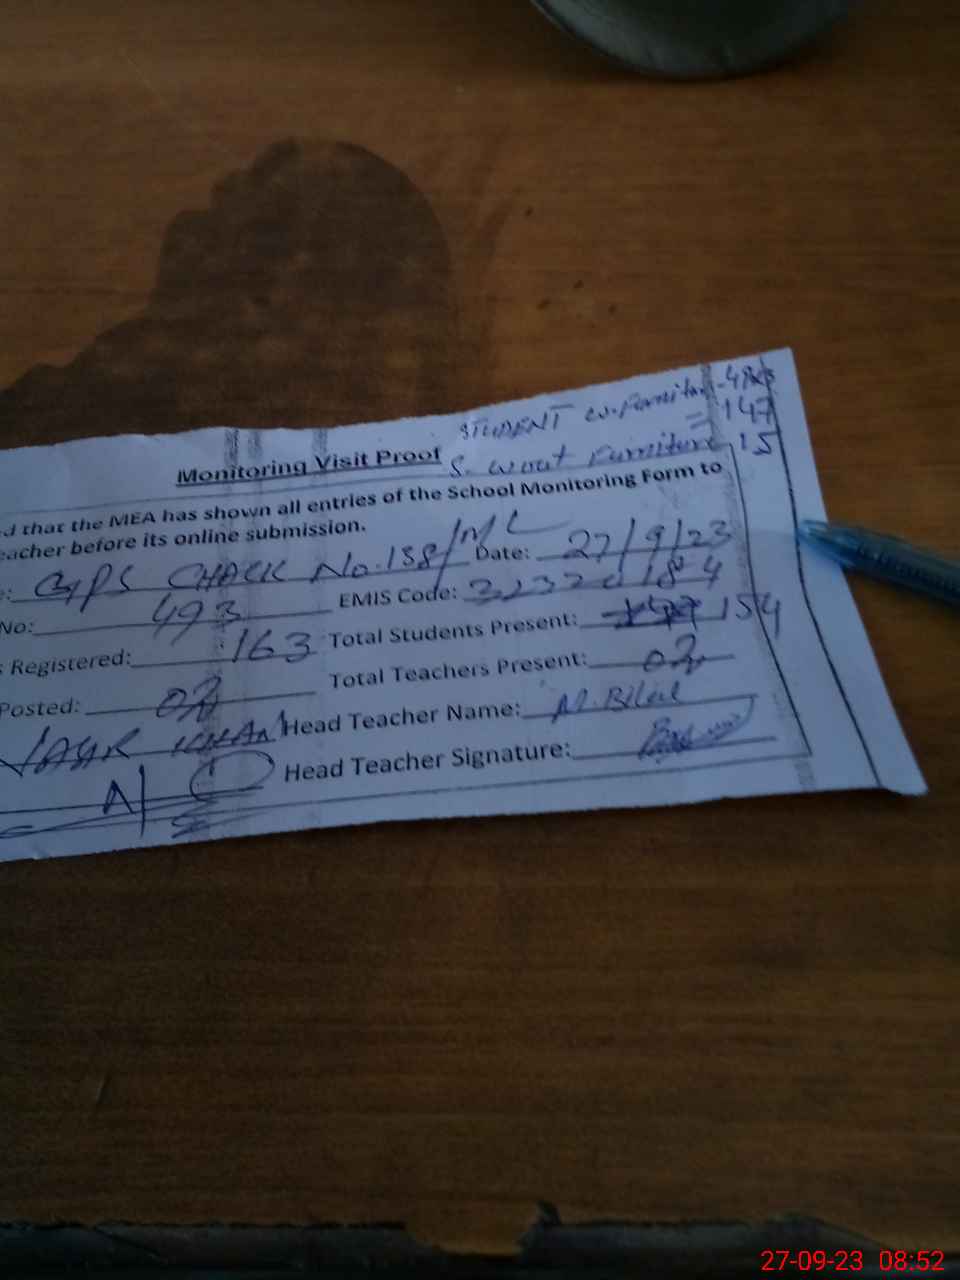 STUDENT w. Furniture
= 147
S. wout Furniture 15
Monitoring Visit Proof
d that the MEA has shown all entries of the School Monitoring Form to
eacher before its online submission.
e: GPS CHACK No.138/ML Date: 27/9/23
No: 493 EMIS Code: 32320184
s Registered: 163 Total Students Present: 154
Total Teachers Present: 02
Posted: 02
Head Teacher Name: M. Bilal
KHAN
Head Teacher Signature:
27-09-23 08:52